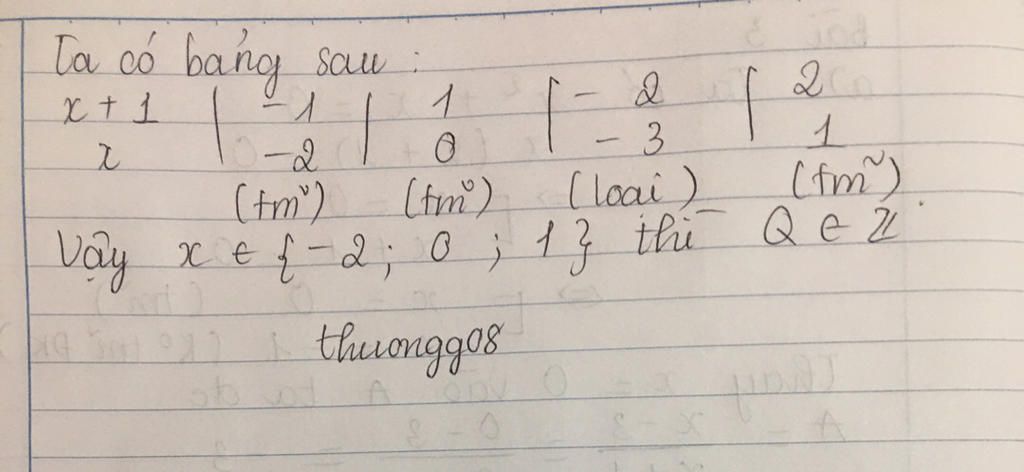 Ta có bảng sau :
x + 1 | -1 | 1 | - 2 | 2
x | -2 | 0 | - 3 | 1
(tm) (tm) (loại) (tm)
Vậy x ∈ {-2 ; 0 ; 1} thì Q ∈ Z
thuongg08